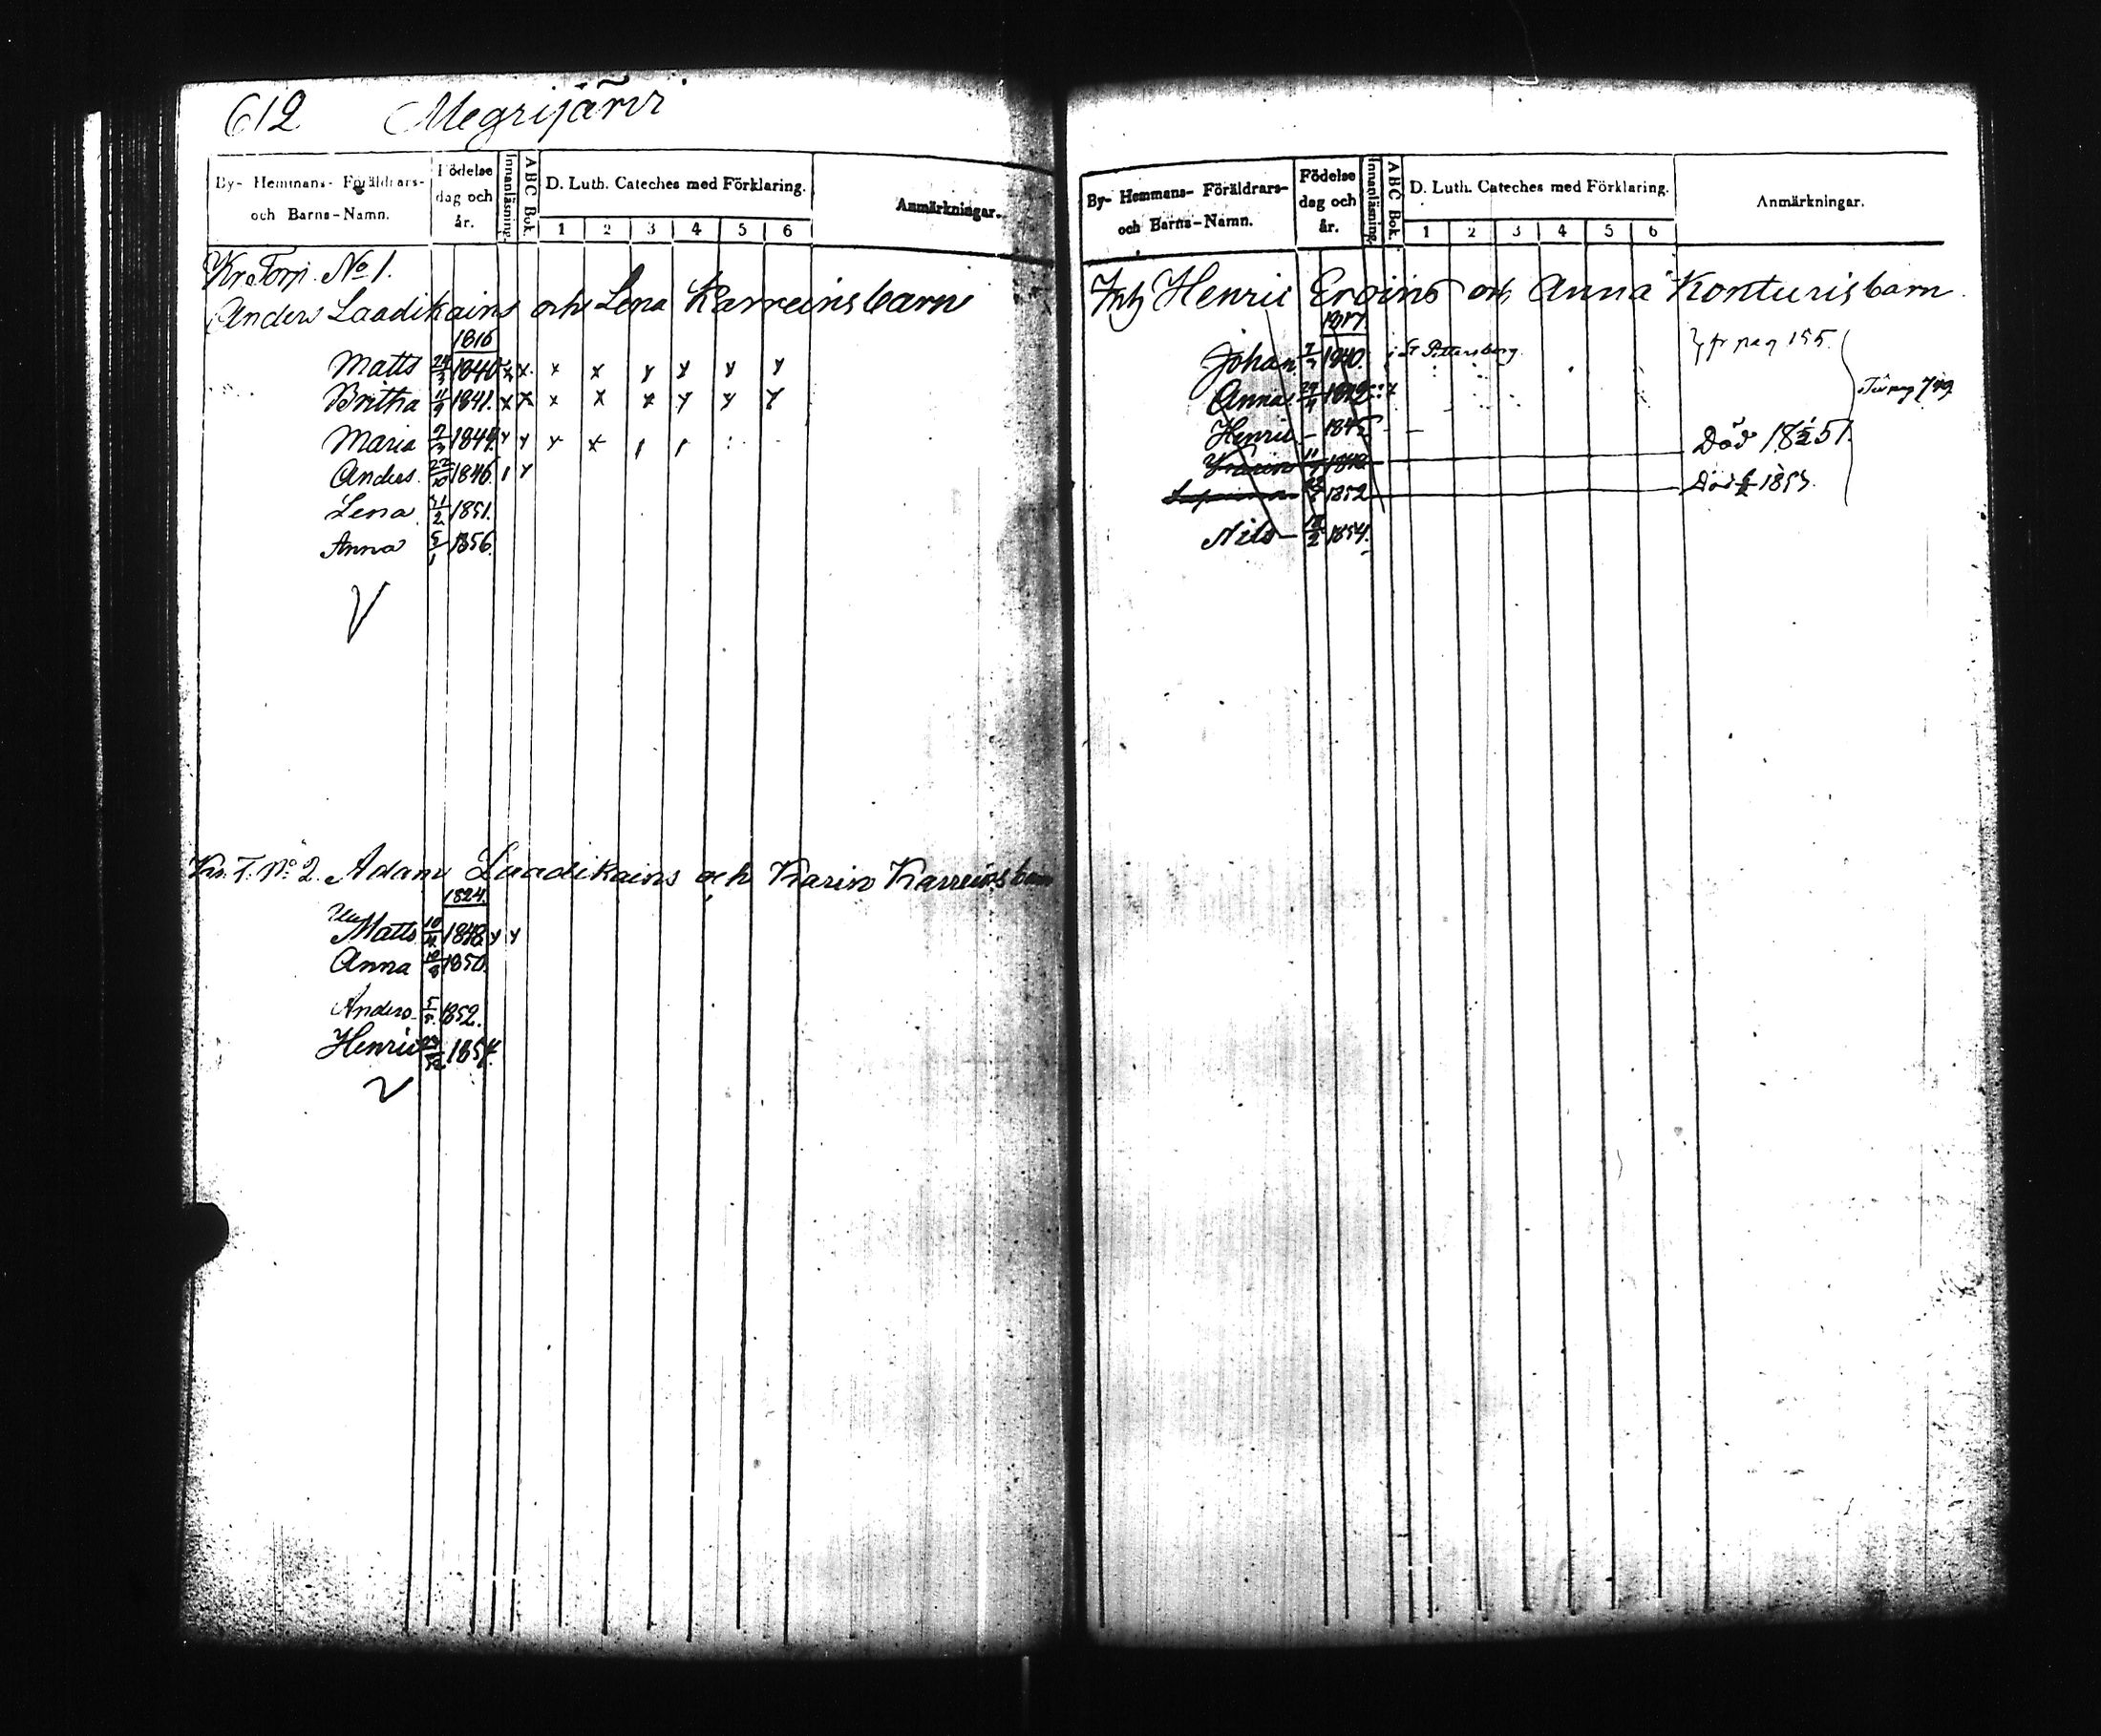 612 Megrijärvi
By- Hemmans- Föräldrars- och Barns-Namn. Födelse dag och år. Innanläsning. ABC Bok. D. Luth. Cateches med Förklaring. 1 2 3 4 5 6 Anmärkningar.
Kr. Torp. No 1.
Anders Laadikains och Lena Karreins barn
1816
Matts 24/3 1840 x x x x y y y y
Britha 11/9 1841. x x x x x y y y
Maria 2/3 1844 y y y x
Anders 22/10 1846. 1 y
Lena 21/2 1851.
Anna 5/1 1856.
V
Kr. T. No 2. Adam Laadikains och Karin Karreins barn
1824.
Matts 10/11 1848 y y
Anna 1850.
Anders 5/5 1852.
Henric 1854.
By- Hemmans- Föräldrars- och Barns-Namn. Födelse dag och år. Innanläsning. ABC Bok. D. Luth. Cateches med Förklaring. 1 2 3 4 5 6 Anmärkningar.
Inh Henric Eroins och Anna Konturis barn
1817
Johan 1840. i St Pettersberg. fr pag 155.
Anna 1842 Till pag 749
Henric – 1845
1848 Död 1851.
1852 Död 1853.
Nils – 1854.